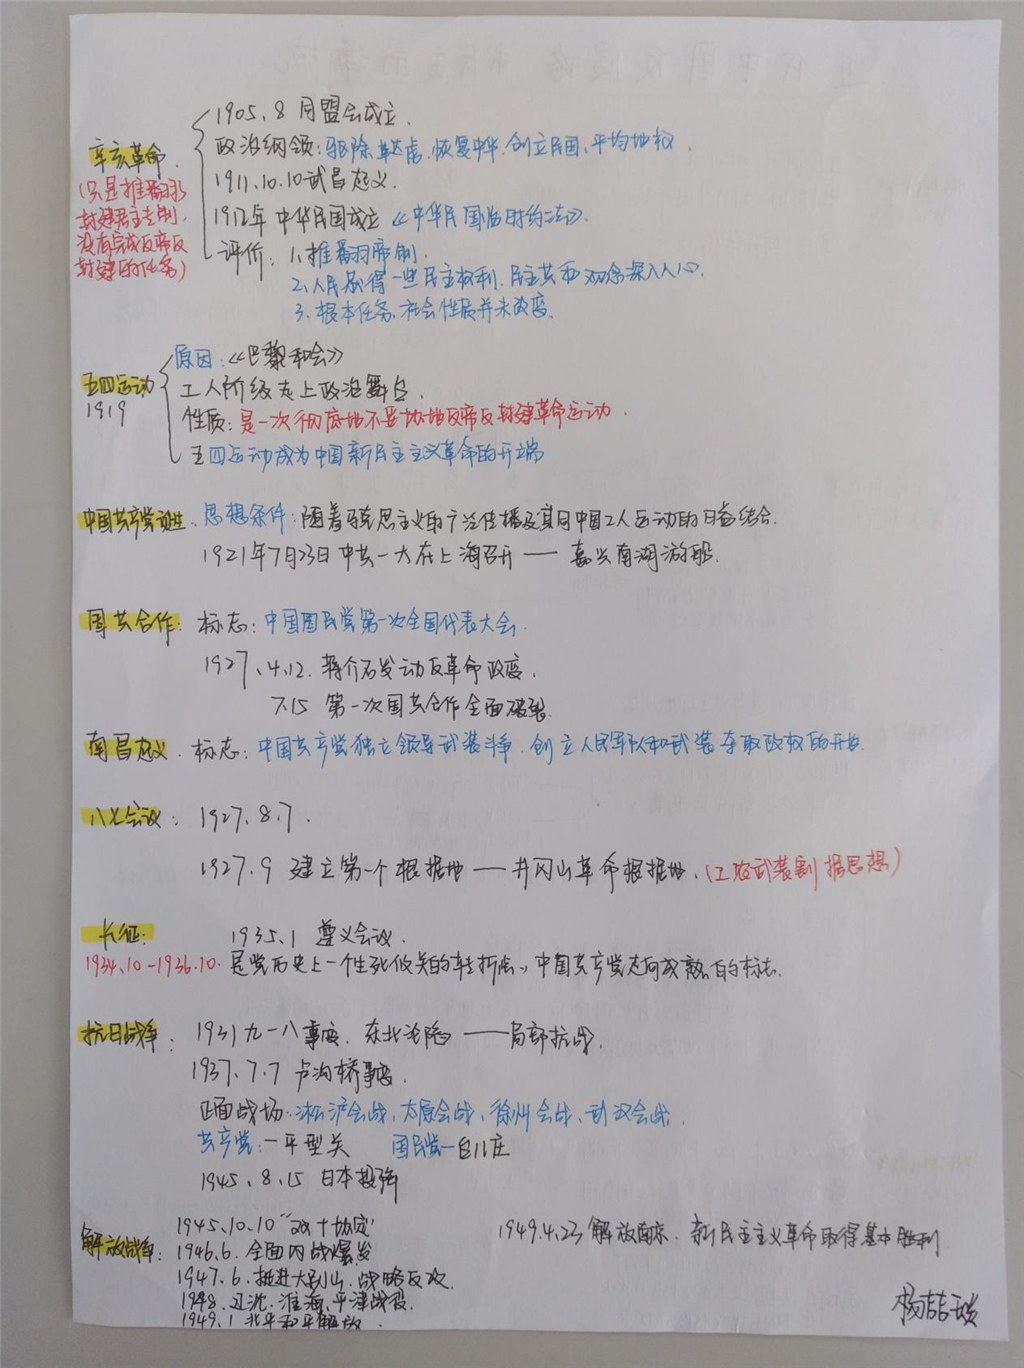 1905.8 同盟会成立.
辛亥革命.
政治纲领：驱除鞑虏.恢复中华.创立民国.平均地权.
(只是推翻了
封建君主专制,
没有完成反帝反
封建的任务)
1911.10.10武昌起义.
1912年 中华民国成立《中华民国临时约法》.
评价：1.推翻帝制.
2.人民获得一些民主权利.民主共和观念深入人心.
3.根本任务.社会性质并未改变.
五四运动
1919
原因：《巴黎和会》
工人阶级走上政治舞台.
性质：是一次彻底地不妥协地反帝反封建革命运动.
五四运动成为中国新民主主义革命的开端
中国共产党诞生.思想条件：随着马克思主义的广泛传播及其同中国工人运动的日益结合.
1921年7月23日中共一大在上海召开——嘉兴南湖游船.
国共合作：标志：中国国民党第一次全国代表大会.
1927.4.12.蒋介石发动反革命政变.
7.15 第一次国共合作全面破裂.
南昌起义.标志：中国共产党独立领导武装斗争.创立人民军队和武装夺取政权的开始.
八七会议：1927.8.7.
1927.9 建立第一个根据地——井冈山革命根据地.(工农武装割据思想)
长征：1935.1 遵义会议.
1934.10-1936.10.是党历史上一个生死攸关的转折点,中国共产党走向成熟的标志.
抗日战争：1931九一八事变.东北沦陷——局部抗战.
1937.7.7 卢沟桥事变.
正面战场：淞沪会战、太原会战、徐州会战、武汉会战.
共产党：—平型关 国民党—台儿庄
1945.8.15 日本投降
解放战争：
1945.10.10“双十协定”
1946.6.全面内战爆发
1947.6.挺进大别山.战略反攻.
1948.辽沈.淮海.平津战役.
1949.1 北平和平解放.
1949.4.23 解放南京.新民主主义革命取得基本胜利